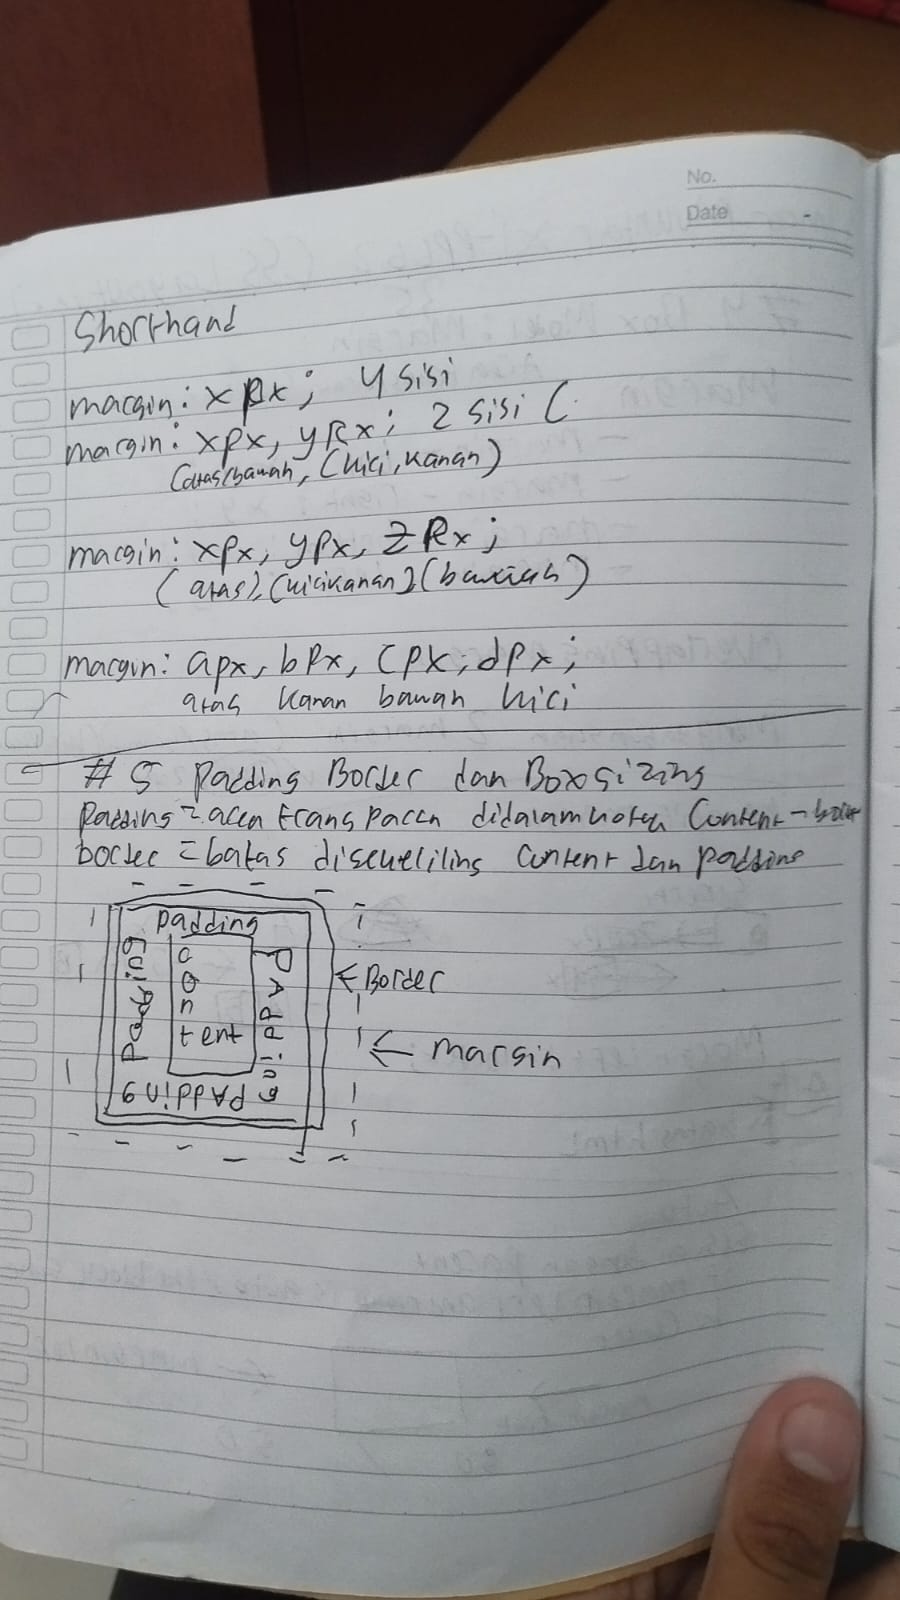 No.
Date
Shorthand
margin: xpx; 4 sisi
margin: xpx, ypx; 2 sisi (
(atas/bawah, (kiri, kanan)
margin: xpx, ypx, zpx;
(atas), (kirikanan) (bawah)
margin: apx, bpx, cpx, dpx;
atas kanan bawah kiri
# 5 Padding Border dan Boxsizing
Padding = area transparan didalam kotak Content-
border = batas disekeliling content dan padding
padding
Padding
content
PADDing
PADDing
← Border
← margin